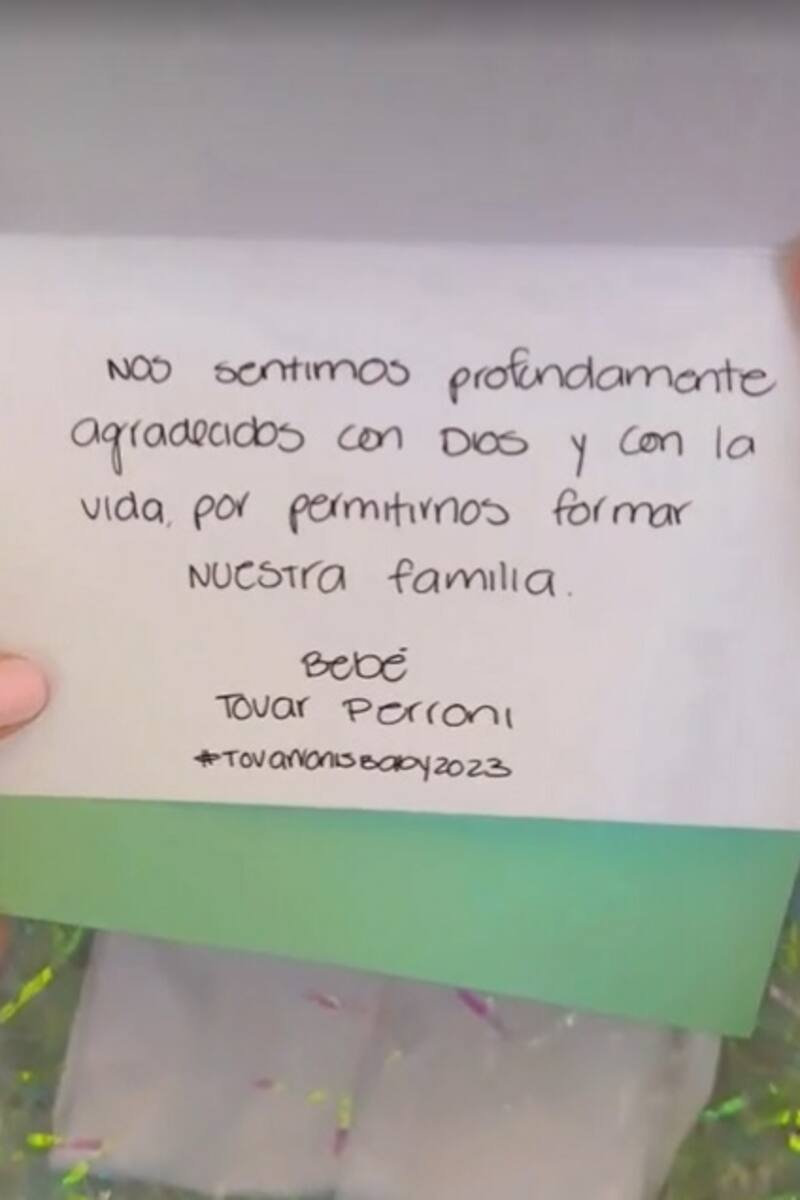 Nos sentimos profundamente
agradecidos con Dios y con la
vida, por permitirnos formar
nuestra familia.
Bebé
Tovar Perroni
#TovarronisBaby2023